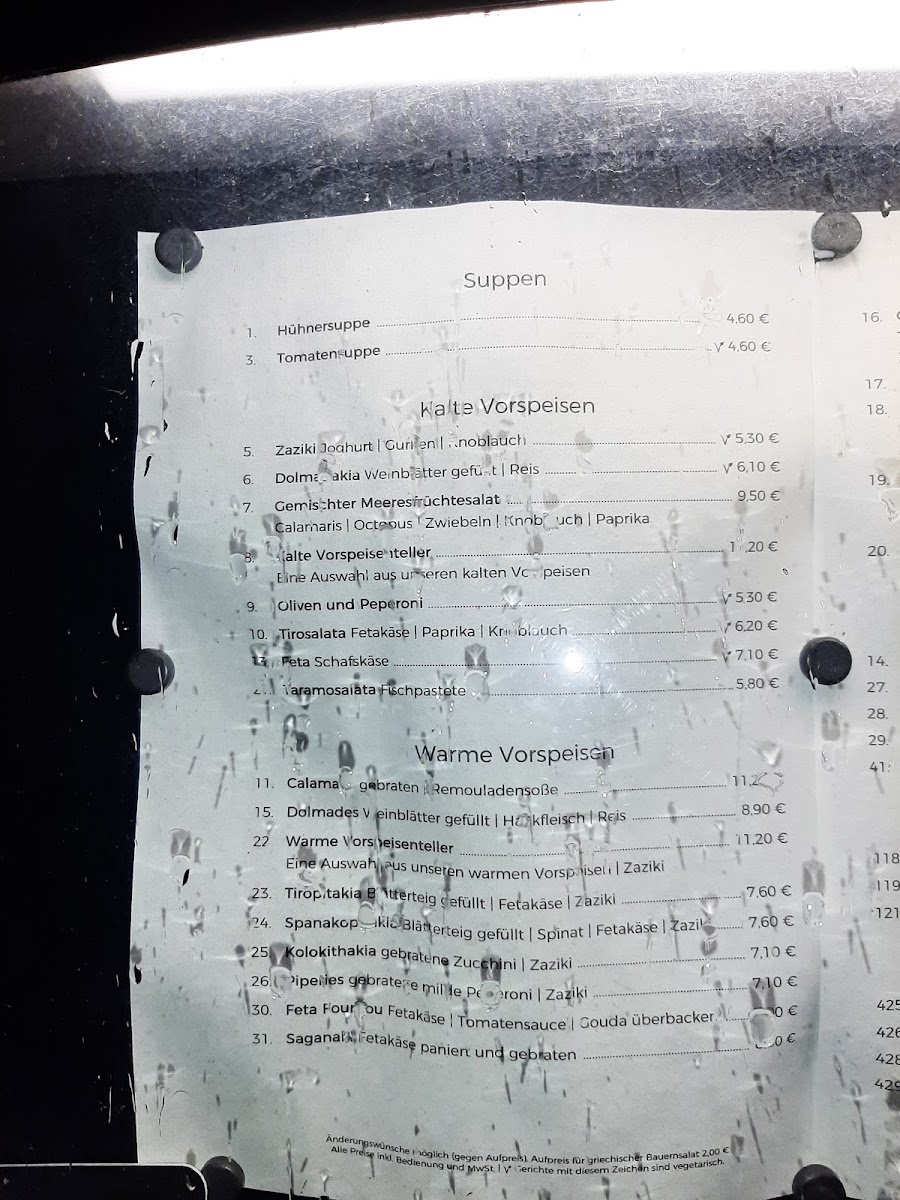 Suppen
1. Hühnersuppe 4,60 €
3. Tomatensuppe V 4,60 €
Kalte Vorspeisen
5. Zaziki Joghurt | Gurken | Knoblauch V 5,30 €
6. Dolmadakia Weinblätter gefüllt | Reis V 6,10 €
7. Gemischter Meeresfrüchtesalat 9,50 €
Calamaris | Octopus | Zwiebeln | Knoblauch | Paprika
8. Kalte Vorspeisenteller
Eine Auswahl aus unseren kalten Vorspeisen
9. Oliven und Peperoni V 5,30 €
10. Tirosalata Fetakäse | Paprika | Knoblauch V 6,20 €
13. Feta Schafskäse V 7,10 €
Taramosalata Fischpastete 5,80 €
Warme Vorspeisen
11. gebraten | Remouladensoße
15. Dolmades Weinblätter gefüllt | Hackfleisch | Reis 8,90 €
22 Warme Vorspeisenteller 11,20 €
Eine Auswahl aus unseren warmen Vorspeisen | Zaziki
23. Tiropitakia Blätterteig gefüllt | Fetakäse | Zaziki 7,60 €
24. Spanakopitakia Blätterteig gefüllt | Spinat | Fetakäse | Zaziki 7,60 €
25. Kolokithakia gebratene Zucchini | Zaziki 7,10 €
26. Piperies gebratene milde Peperoni | Zaziki 7,10 €
30. Feta Fournou Fetakäse | Tomatensauce | Gouda überbacken
31. Saganaki Fetakäse paniert und gebraten
Änderungswünsche möglich (gegen Aufpreis). Aufpreis für griechischer Bauernsalat 2,00 €
Alle Preise inkl. Bedienung und MwSt. | V Gerichte mit diesem Zeichen sind vegetarisch.
16.
17.
18.
19.
20.
14.
27.
28.
29.
41.
118
119
121
425
426
428
429